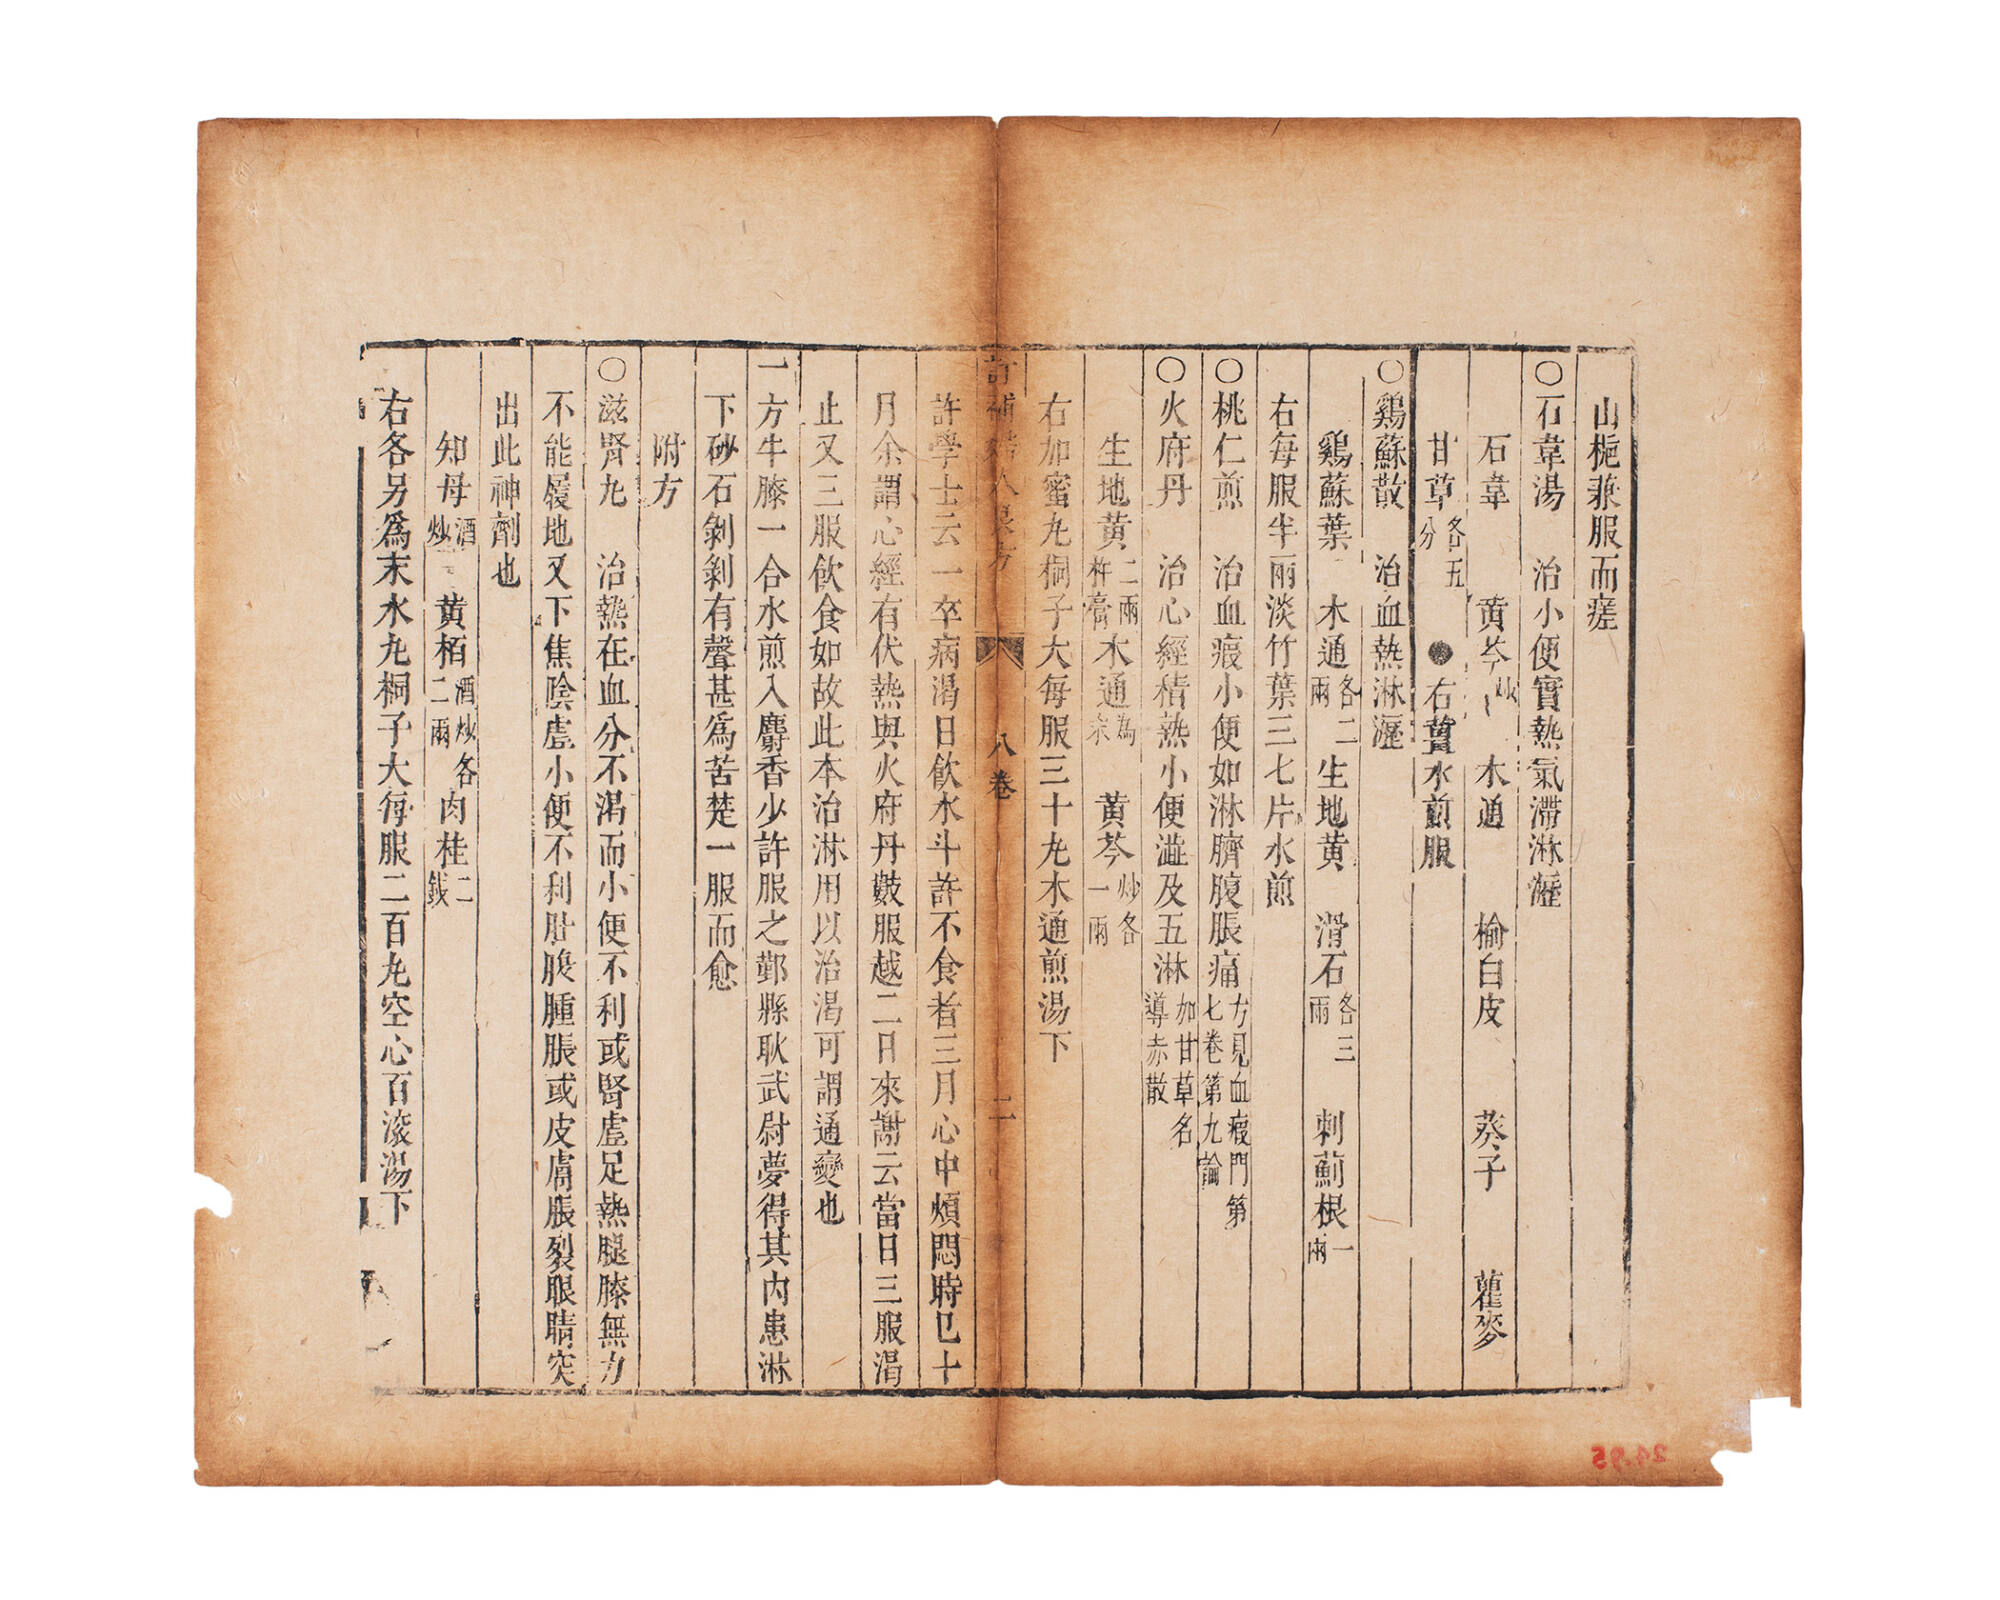 山梔兼服而瘥
○石韋湯　治小便實熱氣滯淋瀝
石韋　黄芩炒　木通　榆白皮　葵子　瞿麥
甘草各五分　●右㕮水煎服
○鷄蘇散　治血熱淋瀝
鷄蘇葉　木通各二兩　生地黄　滑石各三兩　刺薊根一兩
右每服半兩淡竹葉三七片水煎
○桃仁煎　治血瘕小便如淋臍腹脹痛方見血瘕門第七卷第九論
○火府丹　治心經積熱小便澁及五淋加甘草名導赤散
生地黄二兩杵膏　木通為末　黄芩炒各一兩
右加蜜丸桐子大每服三十丸木通煎湯下
訂補　人良方　八卷　二
許學士云一卒病渴日飲水斗許不食者三月心中煩悶時已十
月余謂心經有伏熱與火府丹數服越二日來謝云當日三服渴
止又三服飲食如故此本治淋用以治渴可謂通變也
一方牛膝一合水煎入麝香少許服之鄞縣耿武尉夢得其内患淋
下砂石剝剝有聲甚爲苦楚一服而愈
附方
○滋腎丸　治熱在血分不渴而小便不利或腎虛足熱腿膝無力
不能履地又下焦陰虛小便不利肚腹腫脹或皮膚脹裂眼睛突
出此神劑也
知母酒炒二　黄栢酒炒各二兩　肉桂二錢
右各另爲末水丸桐子大每服二百丸空心百滾湯下
24.95